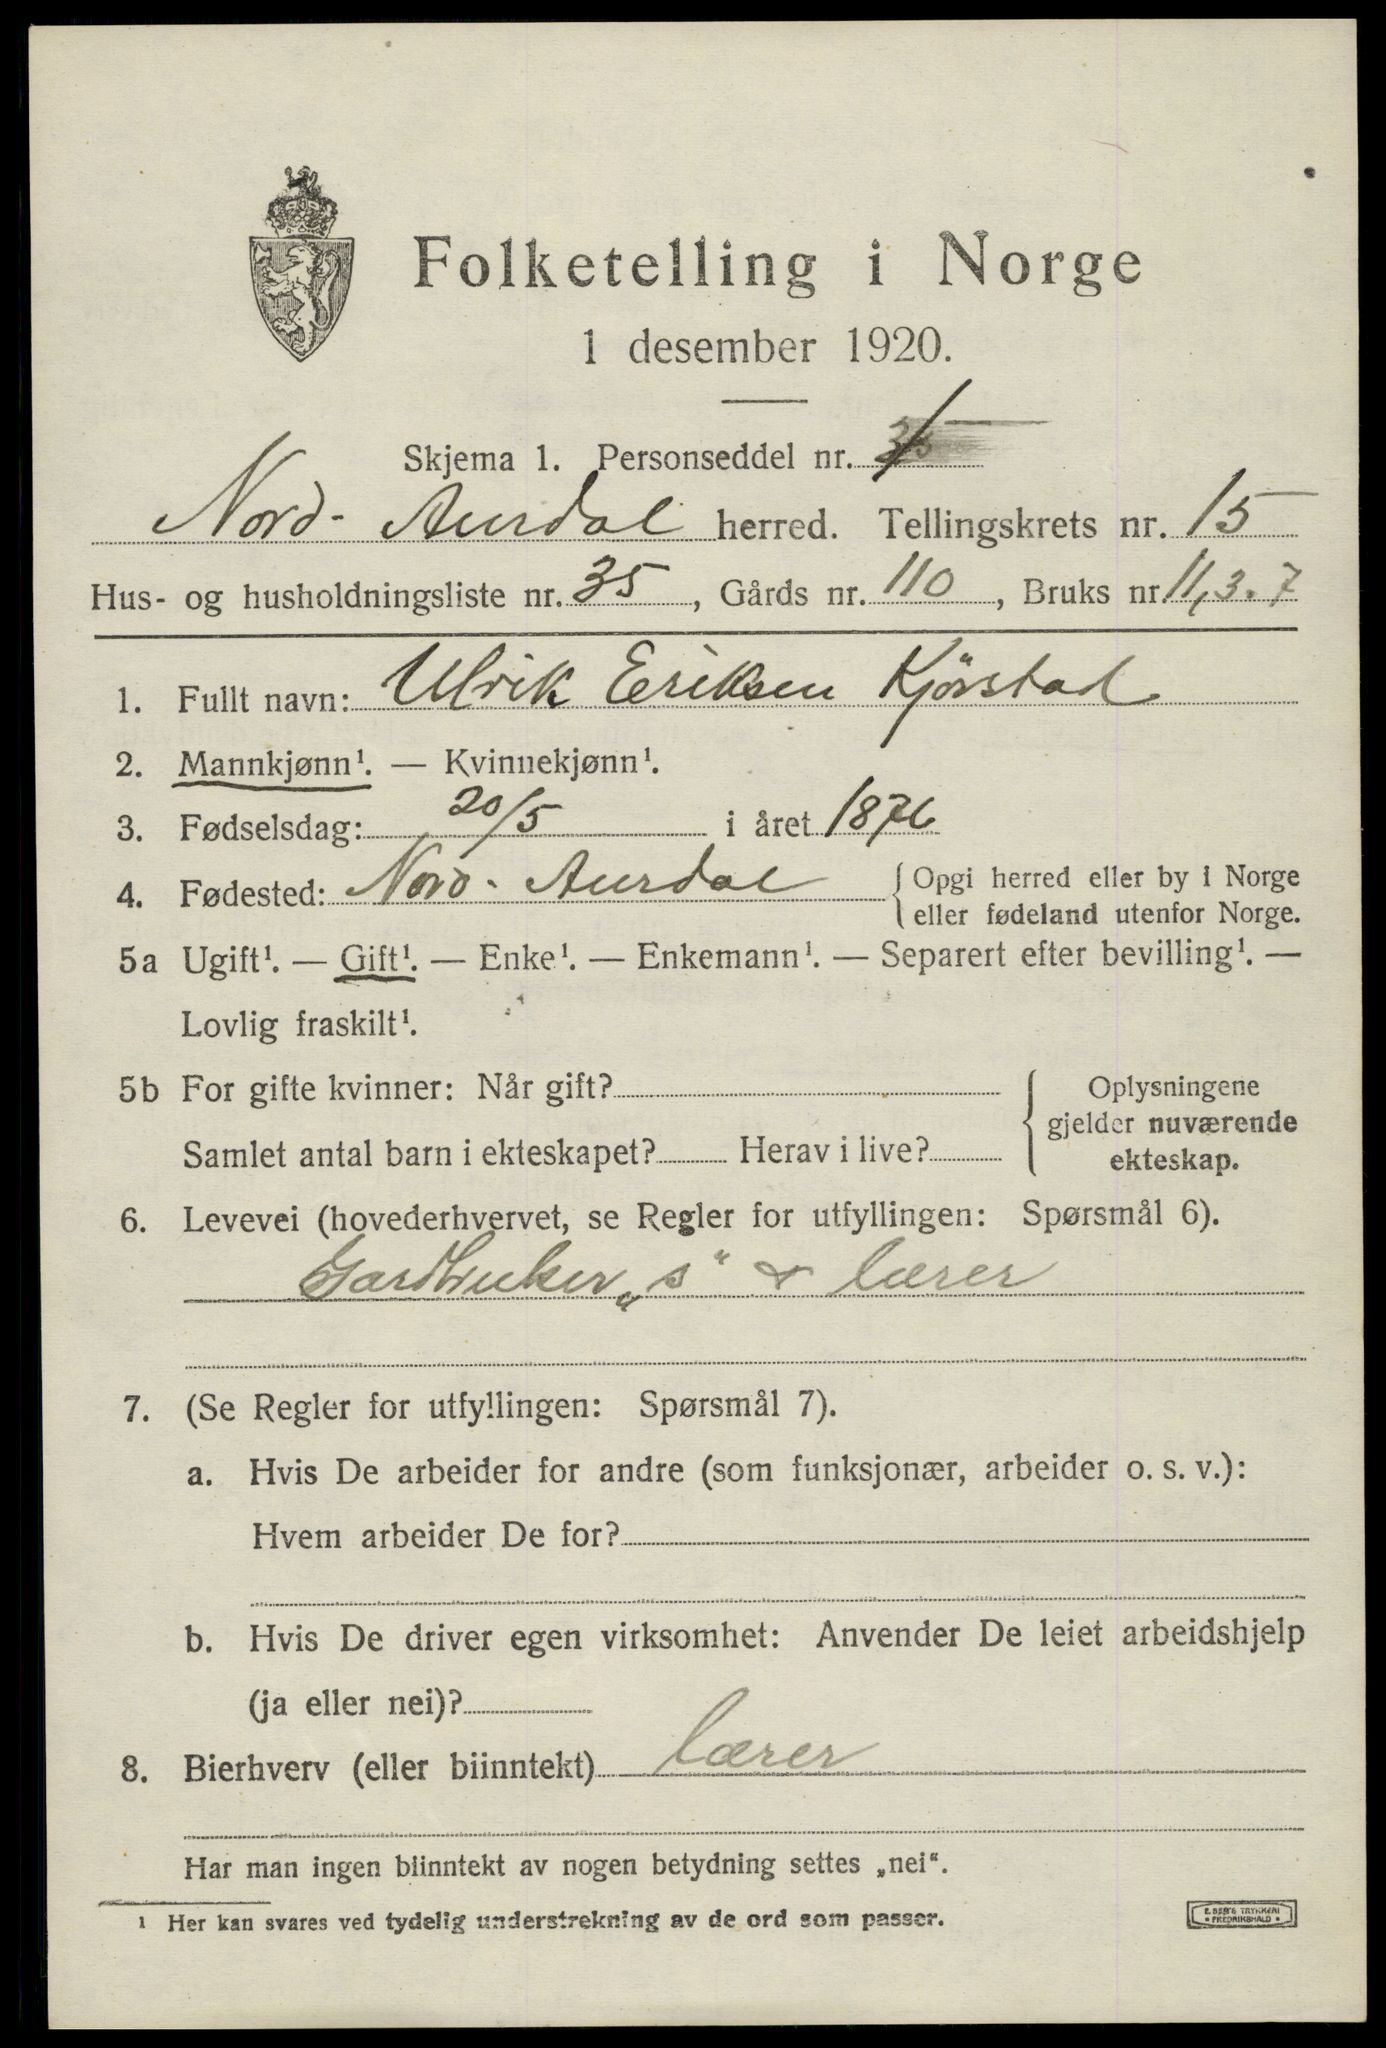 Folketelling i Norge
1 desember 1920.
Skjema 1. Personseddel nr. 1
Nord-Aurdal herred. Tellingskrets nr. 15
Hus- og husholdningsliste nr. 35, Gårds nr. 110, Bruks nr 11,3.7
1. Fullt navn: Ulrik Eriksen Kjörstad
2. Mannkjønn¹. — Kvinnekjønn¹.
3. Fødselsdag: 20/5 i året 1876
4. Fødested: Nord-Aurdal {Opgi herred eller by i Norge
eller fødeland utenfor Norge.
5a Ugift¹. — Gift¹. — Enke¹. — Enkemann¹. — Separert efter bevilling¹. —
Lovlig fraskilt¹.
5b For gifte kvinner: Når gift? { Oplysningene
gjelder nuværende
Samlet antal barn i ekteskapet? Herav i live? ekteskap.
6. Levevei (hovederhvervet, se Regler for utfyllingen: Spørsmål 6).
Gardbruker „s" & lærer
7. (Se Regler for utfyllingen: Spørsmål 7).
a. Hvis De arbeider for andre (som funksjonær, arbeider o. s. v.):
Hvem arbeider De for?
b. Hvis De driver egen virksomhet: Anvender De leiet arbeidshjelp
(ja eller nei)?
8. Bierhverv (eller biinntekt) lærer
Har man ingen biinntekt av nogen betydning settes „nei".
¹ Her kan svares ved tydelig understrekning av de ord som passer.
E. SEM'S TRYKKERI
• FREDRIKSHALD •